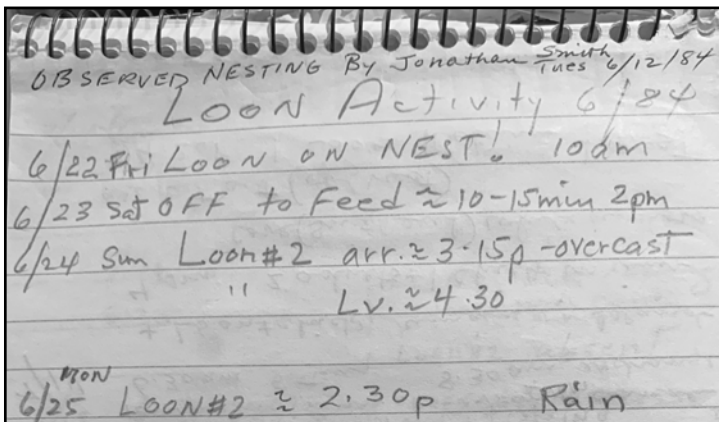 OBSERVED NESTING By Jonathan Smith Tues 6/12/84
LOON Activity 6/84
6/22 Fri LOON ON NEST! 10am
6/23 Sat OFF to Feed ≈ 10-15min 2pm
6/24 Sun Loon#2 arr. ≈ 3.15p -overcast
" Lv. ≈ 4.30
6/25 MON LOON#2 ≈ 2.30p Rain